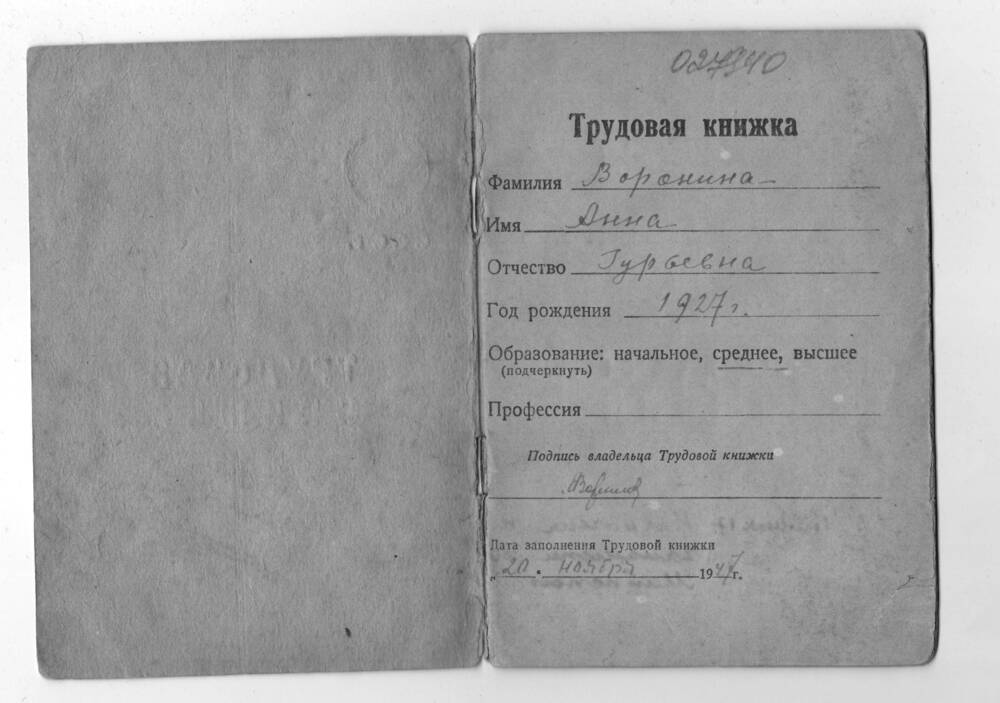 027940
Трудовая книжка
Фамилия Воронина
Имя Анна
Отчество Гурьевна
Год рождения 1927 г.
Образование: начальное, среднее, высшее
(подчеркнуть)
Профессия
Подпись владельца Трудовой книжки
Дата заполнения Трудовой книжки
„20“ ноября 1947 г.